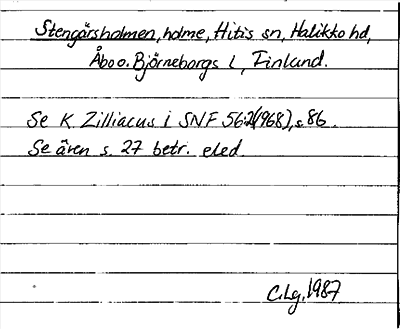 Stengårsholmen, holme, Hitis sn, Halikko hd,
Åbo o. Björneborgs l, Finland.
Se K. Zilliacus i SNF 56.2(1968), s. 86.
Se även s. 27 betr. eled.
C.Lg. 1987